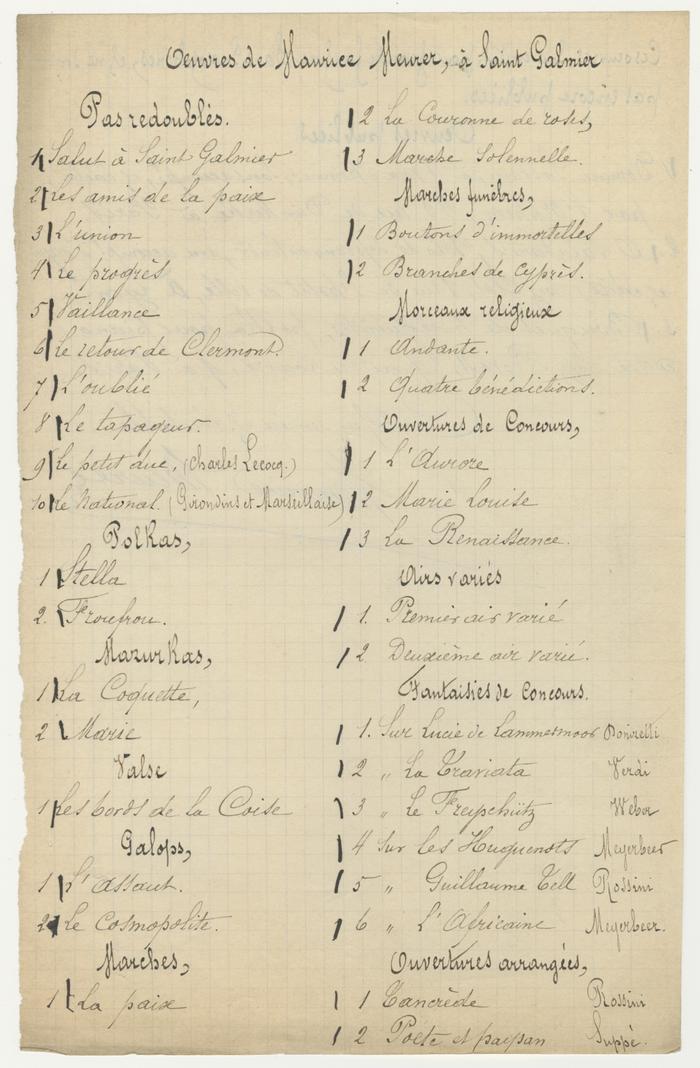 Œuvres de Maurice Meurer, à Saint Galmier
Pas redoublés.
1 Salut à Saint Galmier
2 Les amis de la paix
3 L'union
4 Le progrès
5 Vaillance
6 Le retour de Clermont.
7 L'oublié
8 Le tapageur.
9 Le petit duc, (Charles Lecocq.)
10 Le National. (Girondins et Marseillaise)
Polkas,
1 Stella
2. Froufrou.
Mazurkas,
1 La Coquette,
2 Marie
Valse
1 Les bords de la Coise
Galops,
1 L'assaut.
2 Le Cosmopolite.
Marches,
1 La paix
2 La Couronne de roses,
3 Marche Solennelle.
Marches funèbres,
1 Boutons d'immortelles
2 Branches de cyprès.
Morceaux religieux
1 Andante.
2 Quatre bénédictions.
Ouvertures de Concours,
1 L'Aurore
2 Marie Louise
3 La Renaissance.
Airs variés
1. Premier air varié
2 Deuxième air varié.
Fantaisies de Concours.
1. Sur Lucie de Lammermoor Donizetti
2 " La Traviata Verdi
3 " Le Freyschütz Weber
4 Sur les Huguenots Meyerbeer
5 " Guillaume Tell Rossini
6 " L'Africaine Meyerbeer.
Ouvertures arrangées,
1 Tancrède Rossini
2 Poète et paysan Suppé.